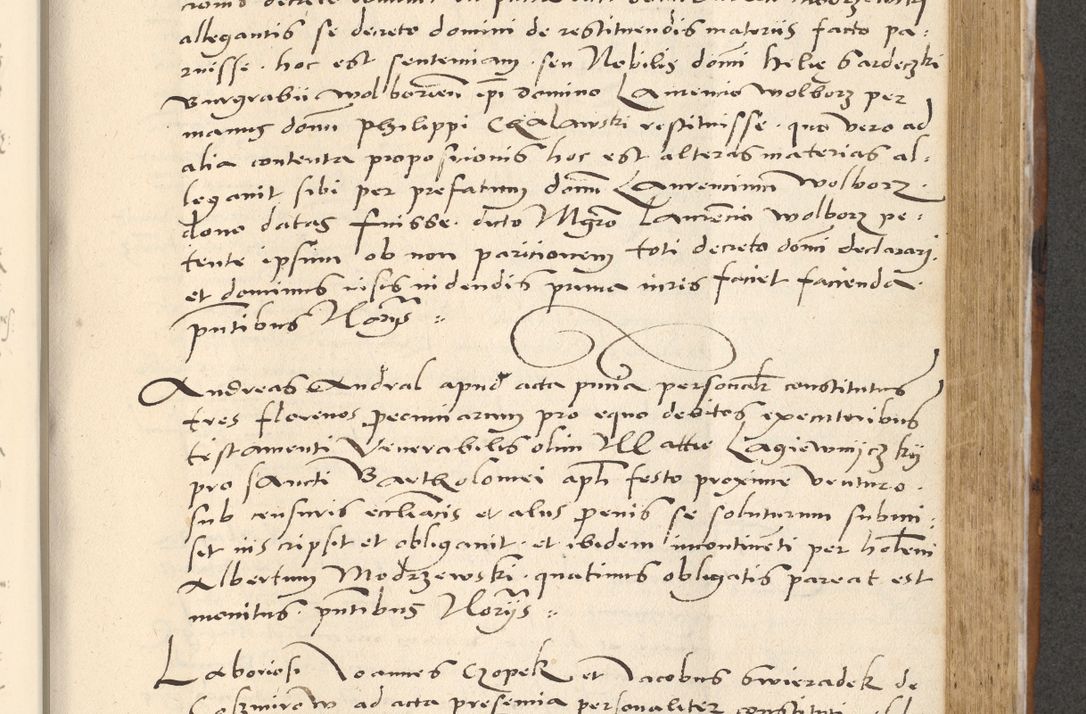 allegantis se decreto domini de restituendis materiis facto pa-
ruisse. hoc est sententiam seu Nobilis domi Helię Gardeczki
Burgrabii wolborien ipi domino Laurencio wolborz per
manus domi Philippi Czalawski restituisse. quo vero ad
alia contenta propositionis hoc est alteras materias al-
legauit sibi per prefatum domi Laurencium wolborz.
dono datas fuisse. dicto Mgro Laurencio wolborz pe-
tente ipsum ob non paricionem toti decreto domi declarari.
et dominus visis videndis prima iuris faciet facienda.
pntibus Norijs
Andreas Andral apud acta pnua personalr constitutus
tres florenos pecuniarum pro equo debitos executoribus
testamenti Venerabilis olim Matthie Lagiewnijczkij
pro sancti Bartholomei apli festo proxime venturo.
sub censuris eccliacis et aliis penis se soluturum submi-
sit inscripsit et obligauit. et ibidem incontinenti per hoblem
Albertum Modrzewski. quatinus obligatis pareat est
monitus. pntibus Norijs
Laboriosi Joannes Czopek et Jacobus Swieradek de
Cosmirow ad acta presencia personaliter constituti